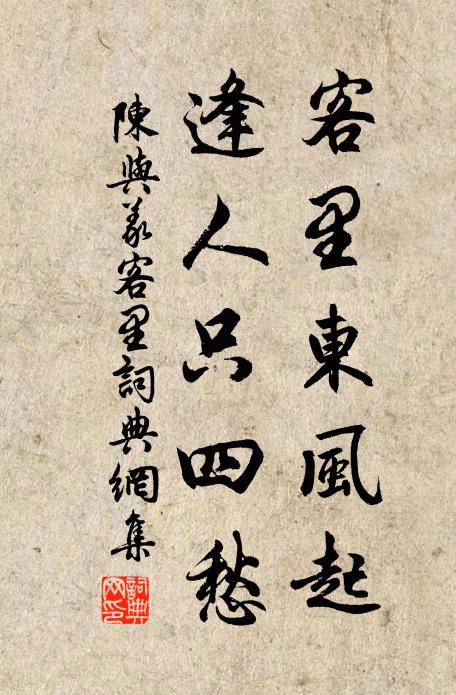 客里東風起
逢人只四愁
陳與義客里詞典網集
詞典
網印